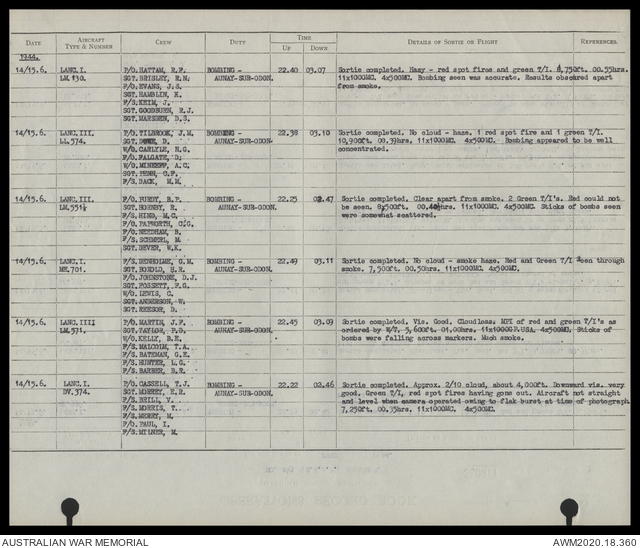 DATE AIRCRAFT TYPE & NUMBER CREW DUTY TIME UP DOWN DETAILS OF SORTIE OR FLIGHT REFERENCES.
1944.
14/15.6. LANC.I. P/O.HATTAM, R.F. BOMBING - 22.40 03.07 Sortie completed. Hazy - red spot fires and green T/I. 8,750ft. 00.55hrs.
LM.130. SGT.BRISLEY, R.N. AUNAY-SUR-ODON. 11x1000MC. 4x500MC. Bombing seen was accurate. Results obscured apart
F/O.EVANS, J.S. from smoke.
SGT.HAMBLIN, K.
F/S.KEIM, J.
SGT.GOODBURN, R.J.
SGT.MARSDEN, D.S.
14/15.6. LANC.III. P/O.TILBROOK, J.M. BOMBING - 22.38 03.10 Sortie completed. No cloud - haze. 1 red spot fire and 1 green T/I.
LL.574. SGT. D. AUNAY-SUR-ODON. 10,900ft. 00.59hrs. 11x1000MC. 4x500MC. Bombing appeared to be well
W/O.CARLYLE, H.G. concentrated.
F/O.FALGATE, D.
W/O. A.C.
SGT.PENN, C.F.
F/S.BACK, M.M.
14/15.6. LANC.III. P/O.PURDY, B.P. BOMBING - 22.25 02.47 Sortie completed. Clear apart from smoke. 2 Green T/I's. Red could not
LM.551. SGT.HORNBY, R. AUNAY-SUR-ODON. be seen. 8,500ft. 11x1000MC. 4x500MC. Sticks of bombs seen
F/S.HIND, M.C. were somewhat scattered.
F/O.PAPWORTH, C.G.
F/O.NEEDHAM, B.
F/S. M.
SGT.BEVER, W.K.
14/15.6. LANC.I. F/S.DENHOLME, G.M. BOMBING - 22.49 03.11 Sortie completed. No cloud - smoke haze. Red and Green T/I seen through
ME.701. SGT.BORDLD, H.R. AUNAY-SUR-ODON. smoke. 7,500ft. 00.50hrs. 11x1000MC. 4x500MC.
F/O.JOHNSTONE, D.J.
SGT.FOSSETT, F.G.
W/O.LEWIS, G.
SGT.ANDERSON, W.
SGT.REESOR, D.
14/15.6. LANC.IIII P/O.MARTIN, J.F. BOMBING - 22.45 03.09 Sortie completed. Vis. Good. Cloudless. MPI of red and green T/I's as
LM.571. SGT.TAYLOR, P.D. AUNAY-SUR-ODON. ordered by W/T. 5,600ft. 01.00hrs. 11x1000G.P.USA. 4x500MC. Sticks of
W/O.KELLY, B.E. bombs were falling across markers. Much smoke.
F/S.MALCOLM, T.A.
F/S.BATEMAN, G.E.
F/S.HUNTER, L.G.
F/S.BARBER, B.R.
14/15.6. LANC.I. P/O.CASSELL, T.J. BOMBING - 22.22 02.46 Sortie completed. Approx. 2/10 cloud, about 4,000ft. Downward vis. very
DV.374. SGT.MOFREY, E.R. AUNAY-SUR-ODON. good. Green T/I, red spot fires having gone out. Aircraft not straight
F/S.BEILL, V. and level when camera operated owing to flak burst at time of photograph
F/S.MORRIS, T. 7,250ft. 00.35hrs. 11x1000MC. 4x500MC.
F/S.MERRY, M.
P/O.PAUL, I.
F/S.MILNER, M.
AUSTRALIAN WAR MEMORIAL AWM2020.18.360